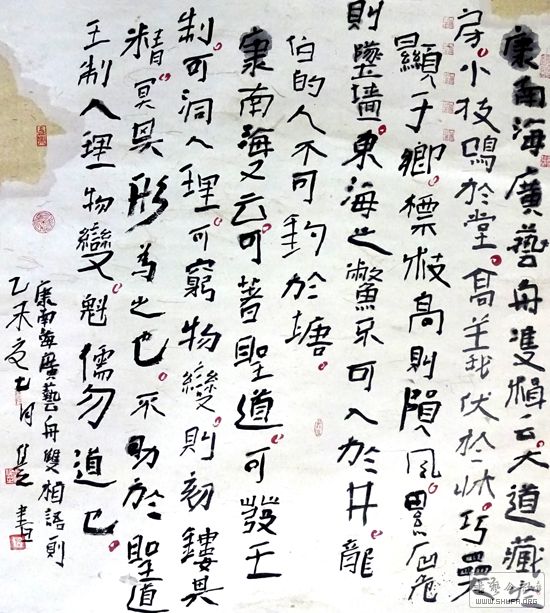 康南海廣藝舟雙楫云大道藏于
房小技鳴於堂高義伏於牀巧奰
顯于鄉標枝高則隕風累石危
則墜墻東海之鱉不可入於井龍
伯的人不可釣於塘
康南海又云可著聖道可發王
制可洞人理可窮物變則刻鏤其
精冥形為之也不劬於聖道
王制人理物變魁儒勿道也
康南海廣藝舟雙楫語則
乙未夏七月書
WWW.SHUFA.ORG